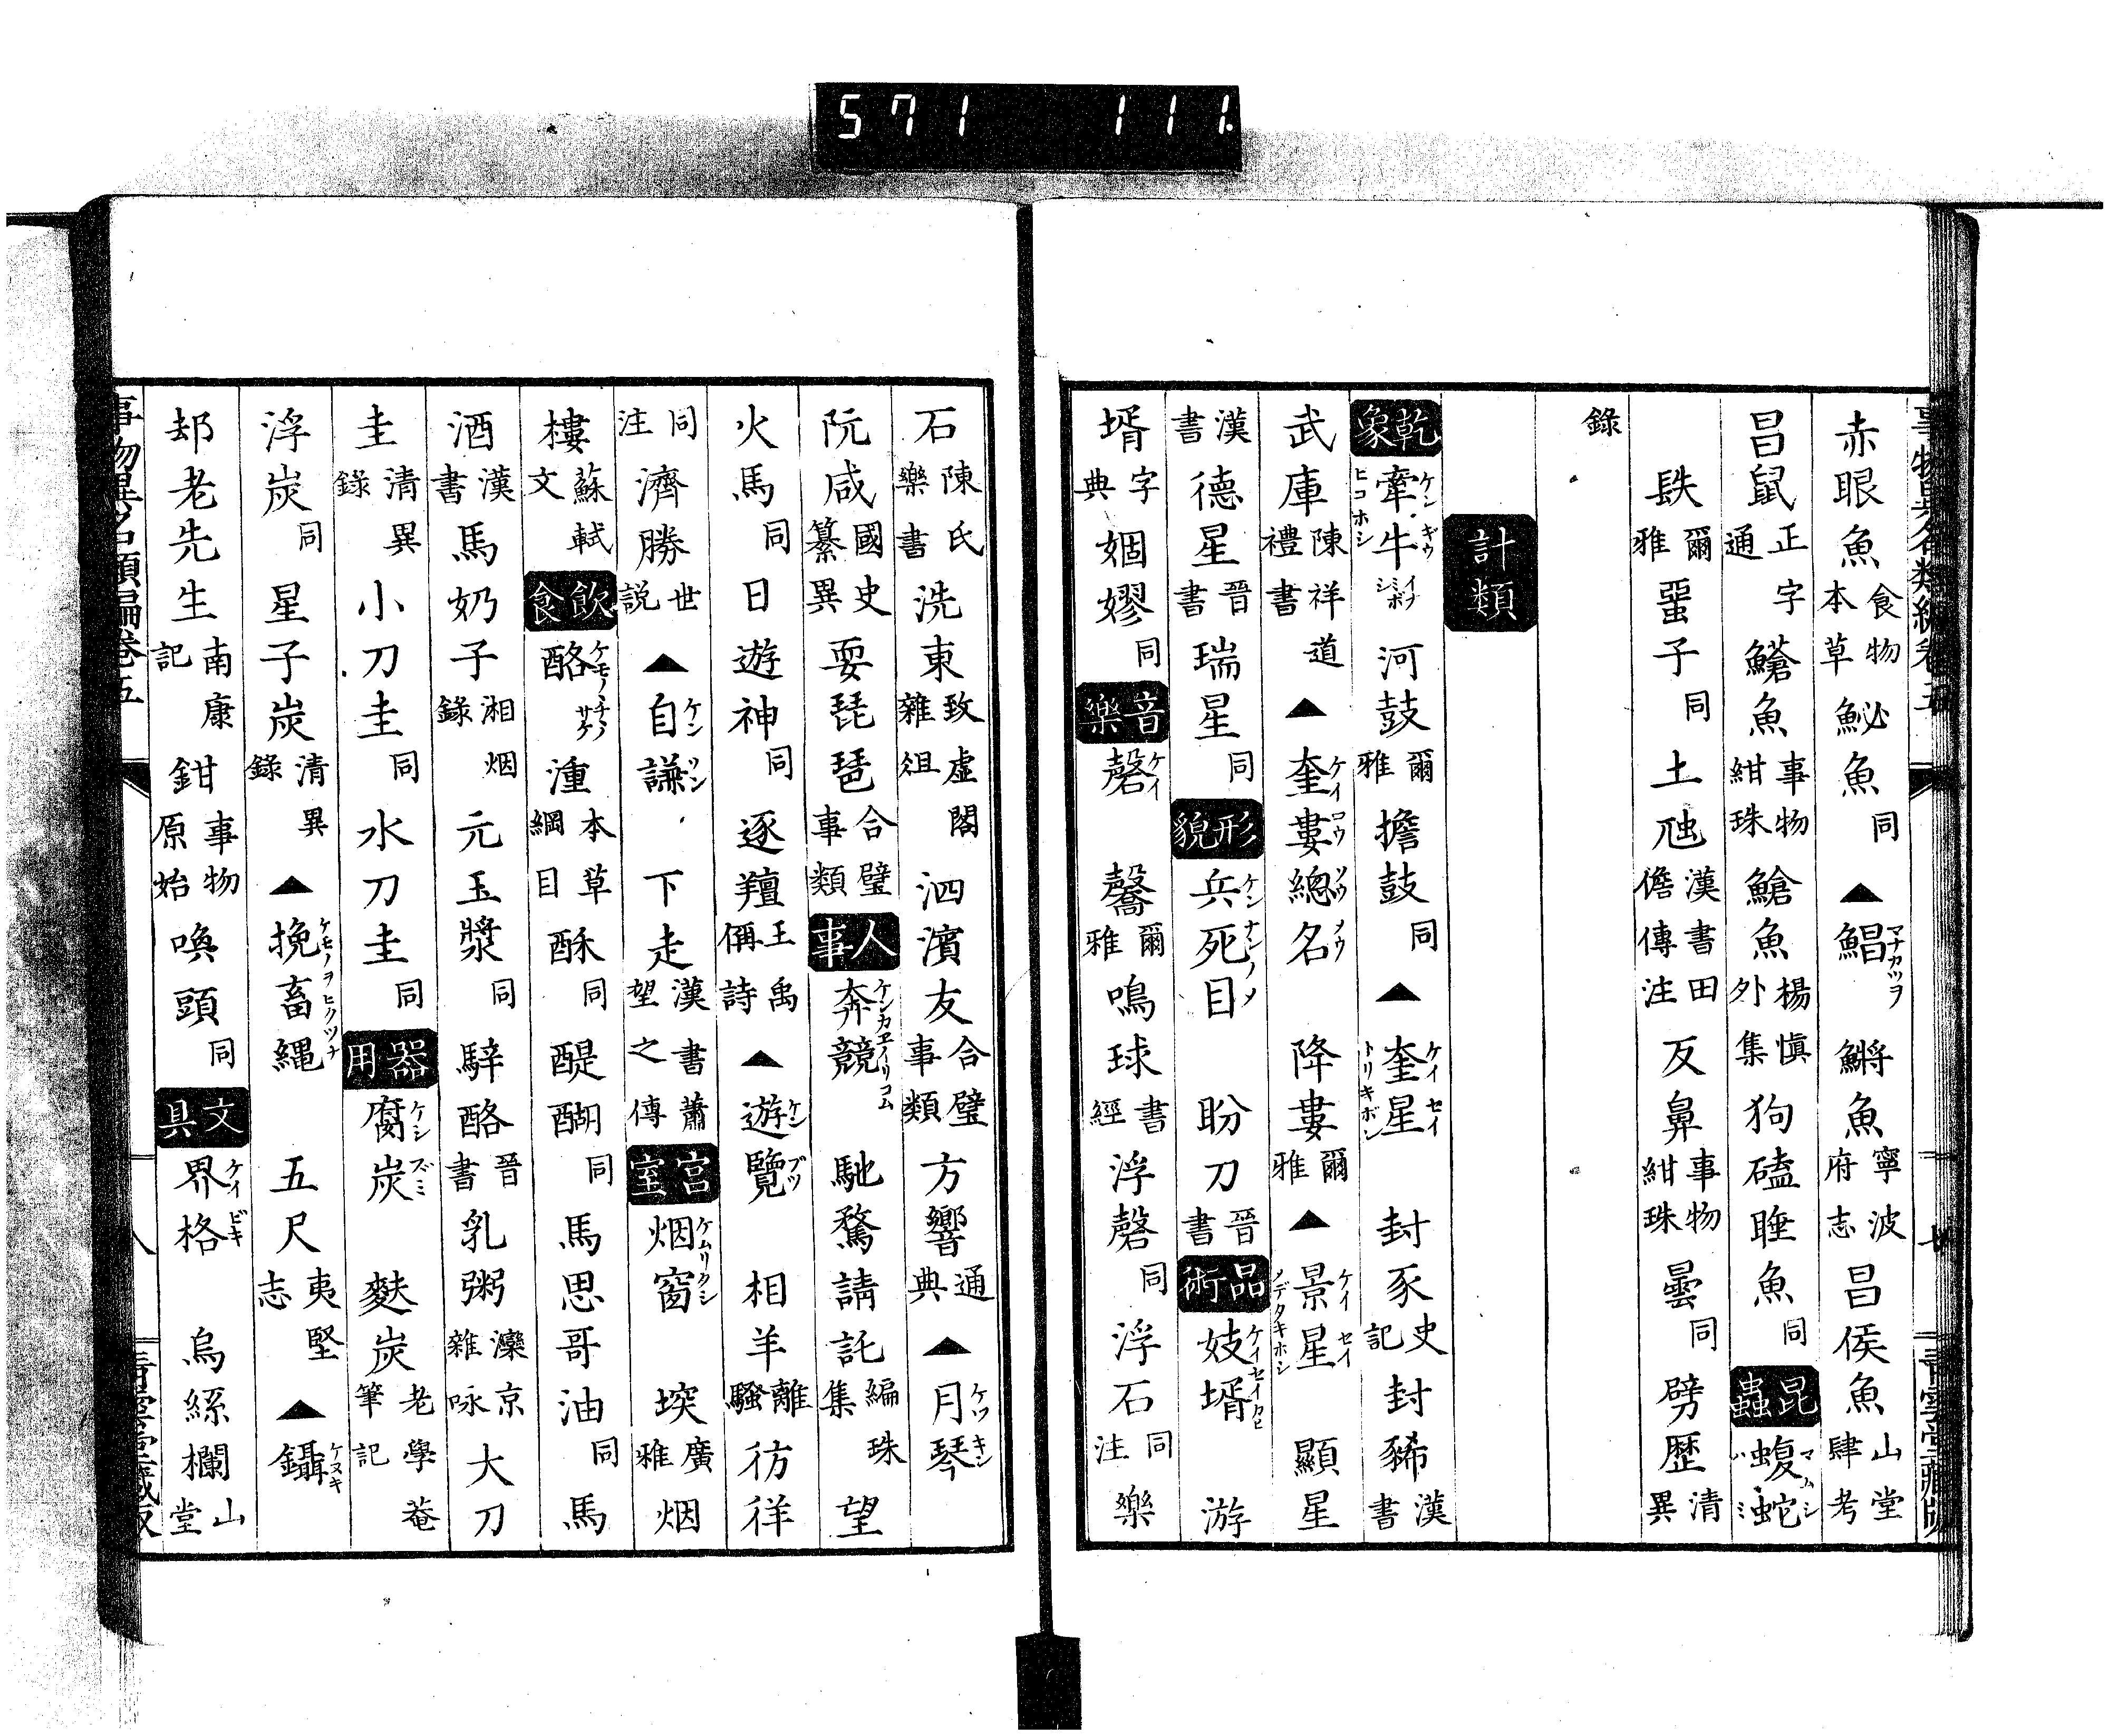 571 111
赤眼魚 食物本草 魮魚 同 ▲鯧 マナカツヲ 鱂魚 寧波府志 昌侯魚 山堂肆考
昌鼠 正字通 䱽魚 事物紺珠 鯧魚 楊慎外集 狗瞌睡魚 同 昆蟲 蝮蛇 マムシ ハミ
镻 爾雅 蝁子 同 土虺 漢書田儋傳注 反鼻 事物紺珠 曇 同 劈歷 清異
錄
計類
乾象 牽牛 ケンギウ ヒコホシ イナミボシ 河鼓 爾雅 擔鼓 同 ▲奎星 ケイセイ トリキボシ 封豕 史記 封豨 漢書
武庫 陳祥道禮書 ▲奎婁總名 ケイロウソウメウ 降婁 爾雅 ▲景星 ケイセイ ノデタキホシ 顯星
漢書 德星 晉書 瑞星 同 形貌 兵死目 ケンナンノメ 盼刀 晉書 品術 妓壻 ケイセイカヒ 游
壻 字典 婟嫪 同 音樂 磬 ケイ 毊 爾雅 鳴球 書經 浮磬 同 浮石 同注 樂
石 陳氏樂書 洗東 致虛閣雜俎 泗濱友 合璧事類 方響 通典 ▲月琴 ケツキン
阮咸 國史纂異 耍琵琶 合璧事類 人事 奔競 ケンカヱイリコム 馳騖請託 編珠集 望
火馬 同 日遊神 同 逐羶 王禹偁詩 ▲遊覽 ケンブツ 相羊 離騷 彷徉
同注 濟勝 世説 ▲自謙 ケンソン 下走 漢書蕭望之傳 宮室 烟窗 ケムリダシ 堗 廣雅 烟
樓 蘇軾文 飲食 酪 ケモノノチノサケ 湩 本草綱目 酥 同 醍醐 同 馬思哥油 同 馬
酒 漢書 馬奶子 湘烟錄 元玉漿 同 騂酪 晉書 乳粥 灤京雜咏 大刀
圭 清異錄 小刀圭 同 水刀圭 同 器用 腐炭 ケシズミ 麩炭 老學菴筆記
浮炭 同 星子炭 清異錄 ▲挽畜繩 ケモノヲヒクツナ 五尺 夷堅志 ▲鑷 ケヌキ
郄老先生 南康記 鉗 事物原始 喚頭 同 文具 界格 ケイビキ 烏絲欄 山堂